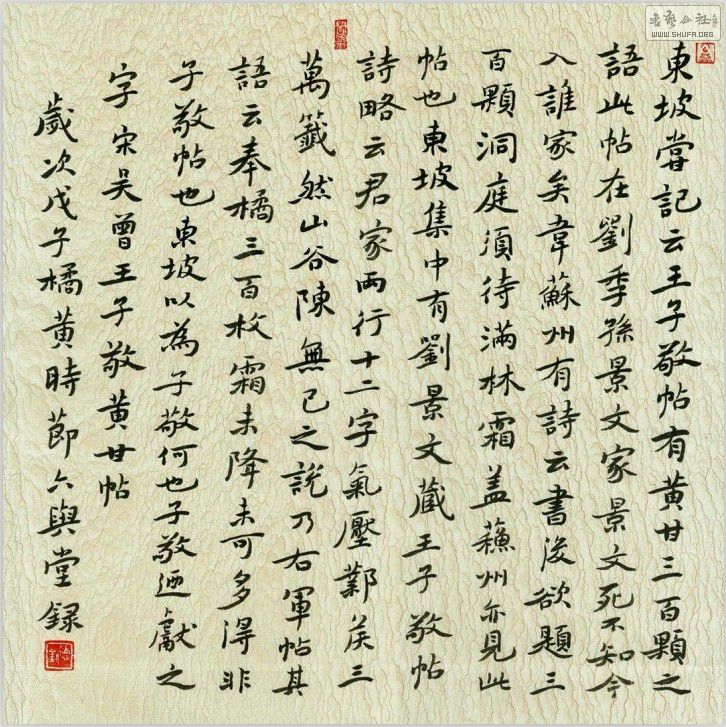 東坡嘗記云王子敬帖有黄甘三百顆之
語此帖在劉季孫景文家景文死不知今
入誰家矣韋蘇州有詩云書後欲題三
百顆洞庭須待滿林霜盖蘓州亦見此
帖也東坡集中有劉景文藏王子敬帖
詩略云君家兩行十二字氣壓鄴侯三
萬籤然山谷陳無己之說乃右軍帖其
語云奉橘三百枚霜未降未可多得非
子敬帖也東坡以為子敬何也子敬迺獻之
字宋吴曾王子敬黄甘帖
歲次戊子橘黄時節六與堂録
書藝公社
WWW.SHUFA.ORG